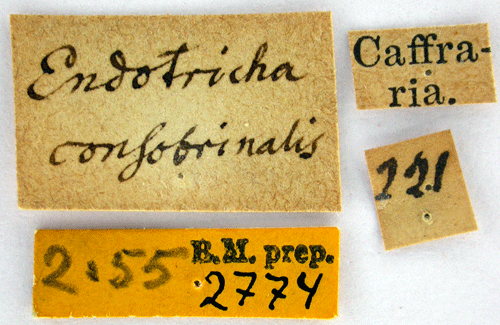 Endotricha
consobrinalis
Caffra-
ria.
221
2.55 B.M. prep.
2774